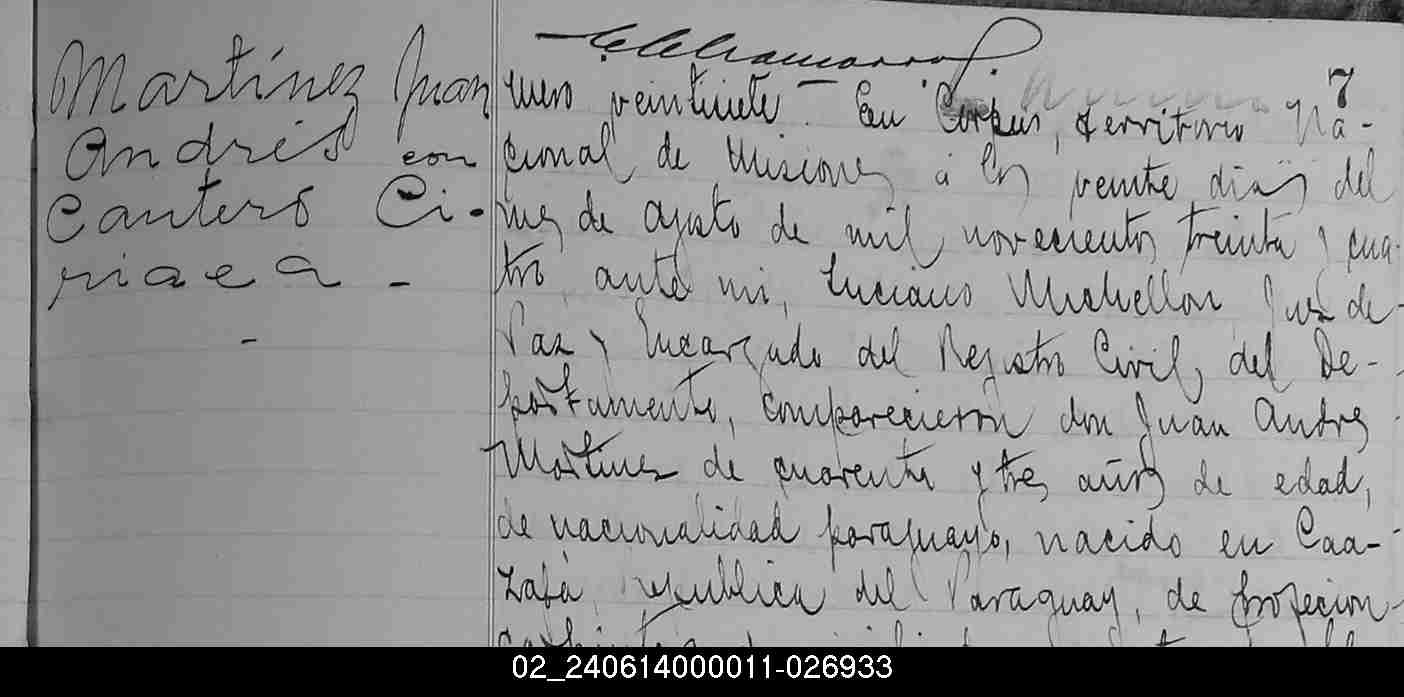 Martínez Juan
Andrés con
Cantero Ci-
riaca -
7
mero veintisiete - En Corpus, territorio Na-
cional de Misiones á los veinte dias del
mes de agosto de mil novecientos treinta y cua-
tro, ante mi, Luciano Juez de
Paz y Encargado del Registro Civil, del De-
partamento, comparecieron don Juan Andres
Martinez de cuarenta y tres años de edad,
de nacionalidad paraguayo, nacido en Caa-
zapá, republica del Paraguay, de profecion
02_240614000011-026933